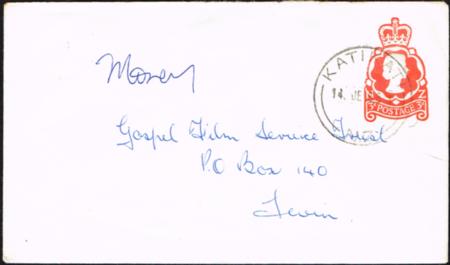 Money
KATIKATI
14 JE
N Z
3d POSTAGE 3d
Gospel Film Service Trust
P.O Box 140
Levin.